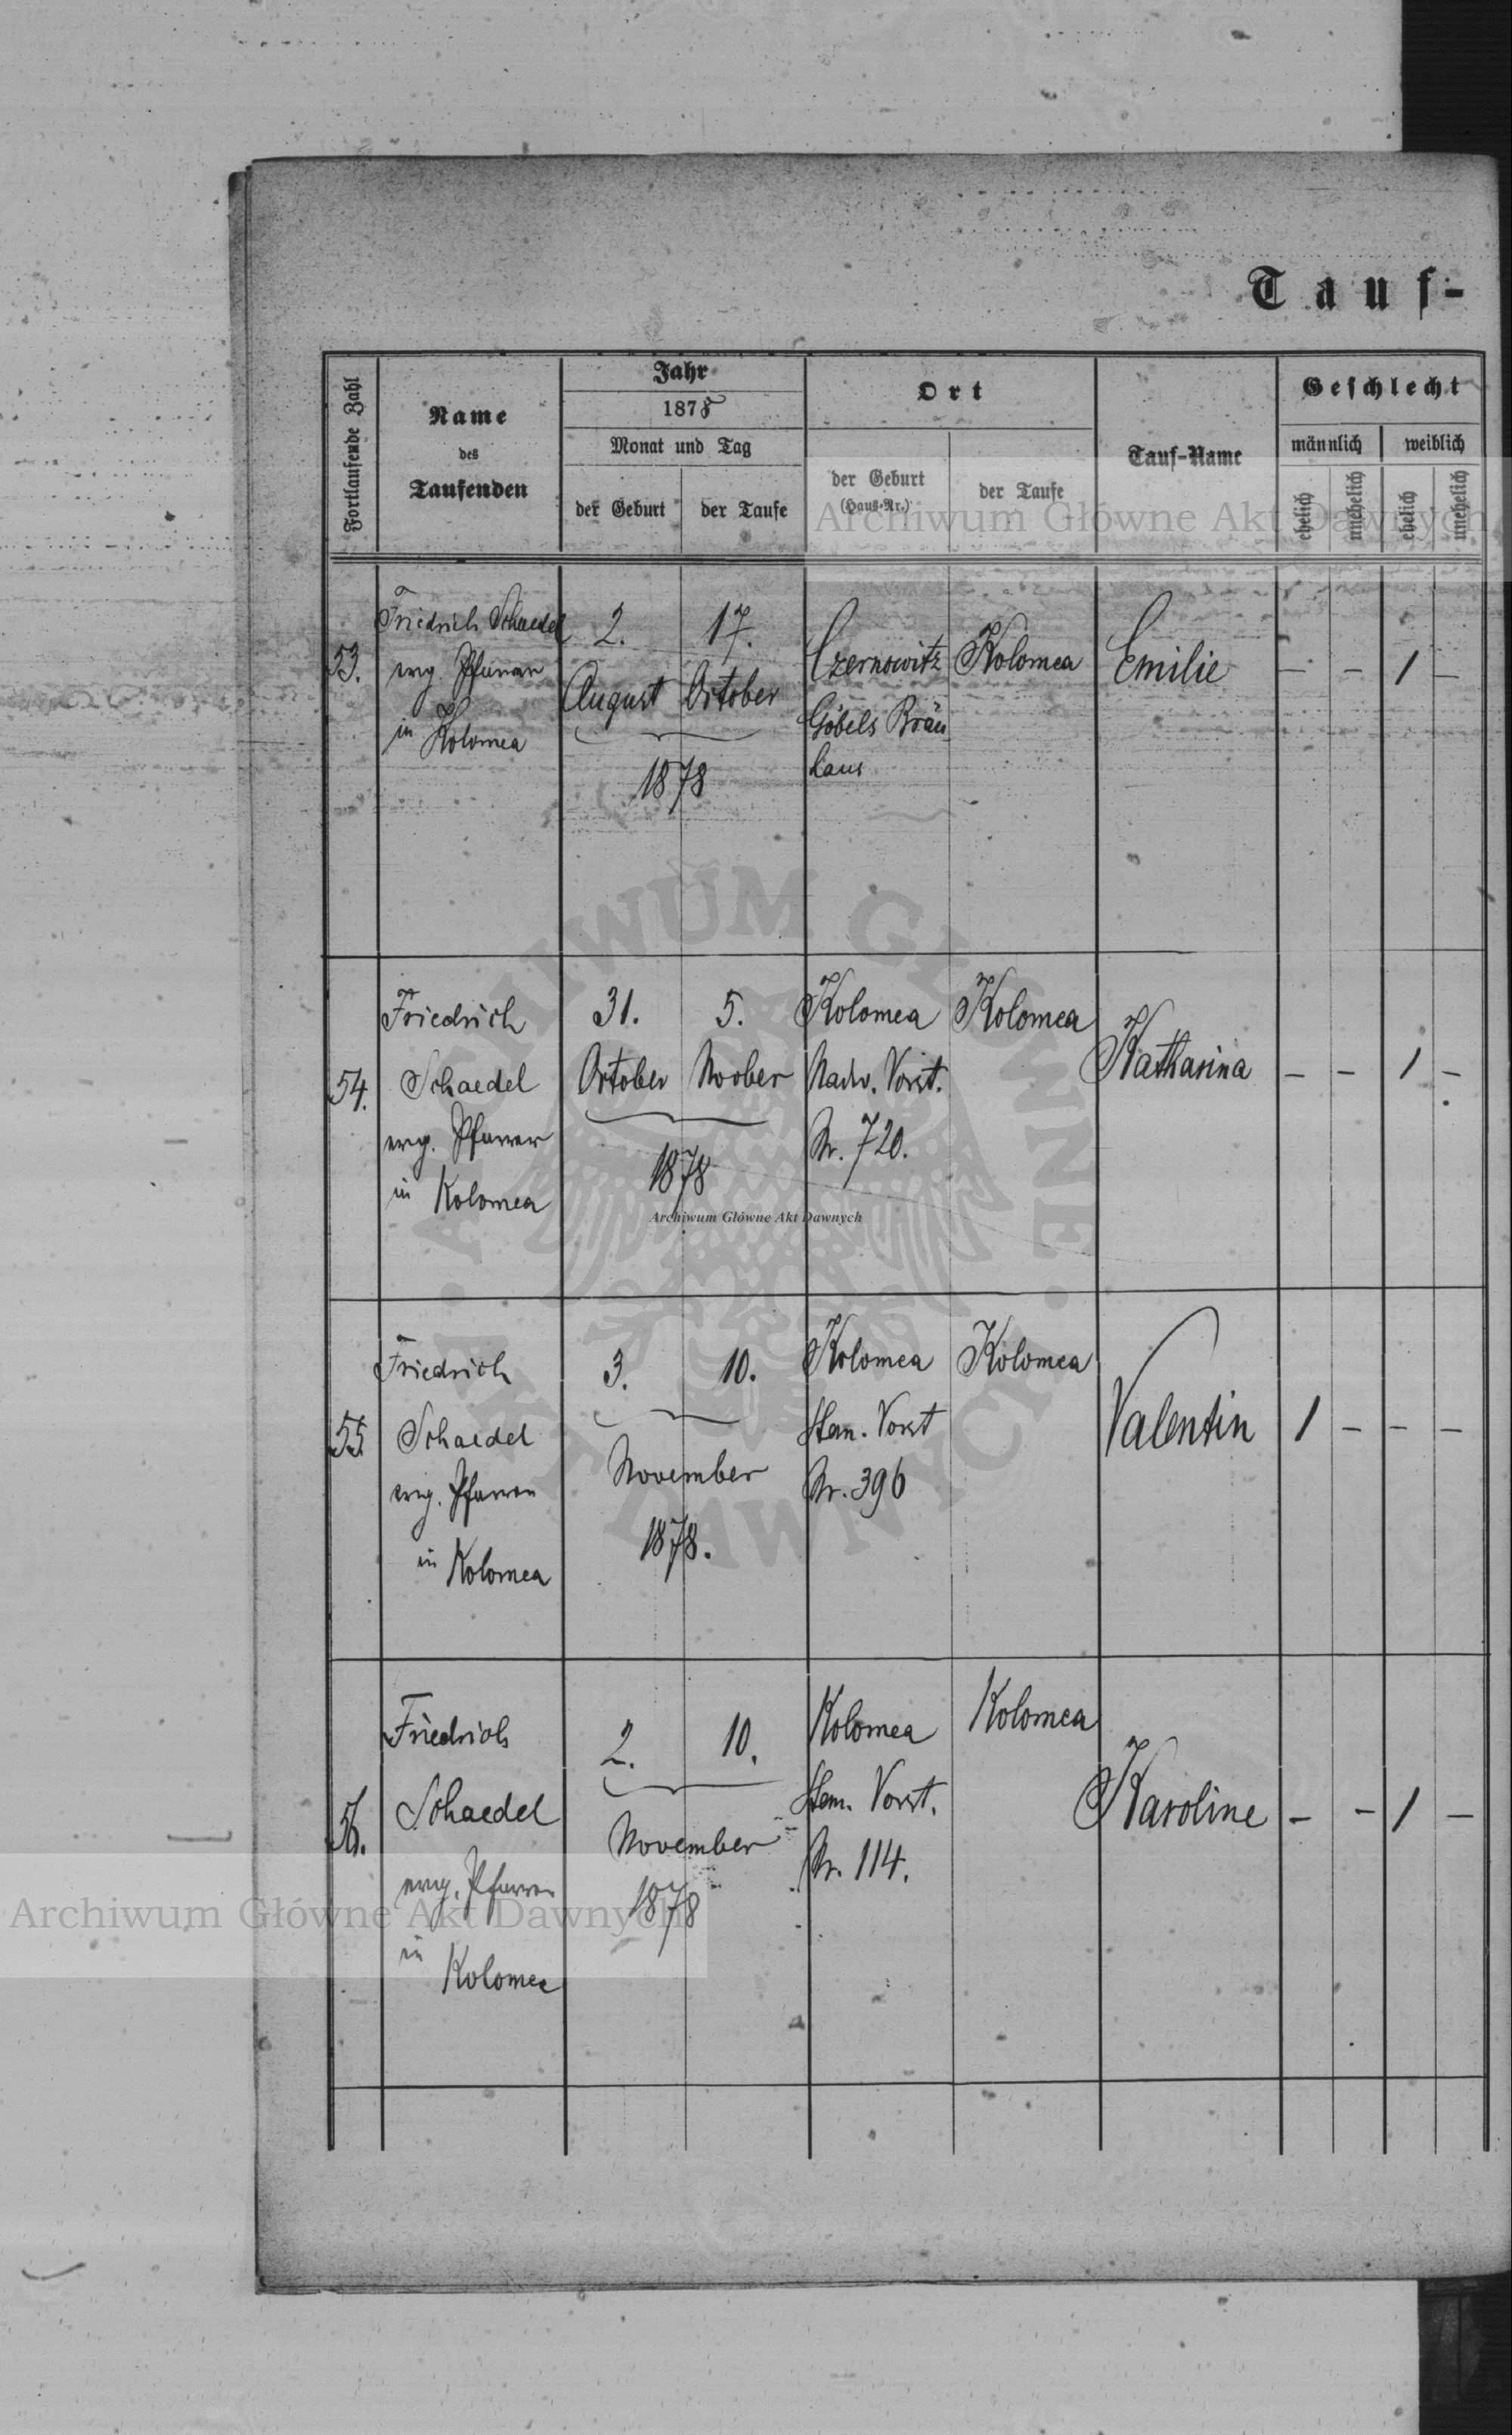 Tauf-
Fortlaufende Zahl
Name
des
Taufenden
Jahr
1878
Monat und Tag
der Geburt
der Taufe
Ort
der Geburt
(Haus-Nr.)
der Taufe
Tauf-Name
Geschlecht
männlich
weiblich
ehelich
unehelich
ehelich
unehelich
Archiwum Główne Akt Dawnych
53.
Friedrich Schaedel
evg. Pfarrer
in Kolomea
2.
August
17.
October
1878
Czernowitz
Göbels Bräu
haus
Kolomea
Emilie
— — 1 —
54.
Friedrich
Schaedel
evg. Pfarrer
in Kolomea
31.
October
5.
Novber
1878
Kolomea
Nadw. Vorst.
Nr. 720.
Kolomea
Katharina
— — 1 —
ARCHIWUM GŁÓWNE
AKT DAWNYCH
Archiwum Główne Akt Dawnych
55.
Friedrich
Schaedel
evg. Pfarrer
in Kolomea
3.
10.
November
1878.
Kolomea
Stan. Vorst
Nr. 396
Kolomea
Valentin
1 — — —
56.
Friedrich
Schaedel
evg. Pfarrer
in
Kolomea
2.
10.
November
1878
Kolomea
Stan. Vorst.
Nr. 114.
Kolomea
Karoline
— — 1 —
Archiwum Główne Akt Dawnych